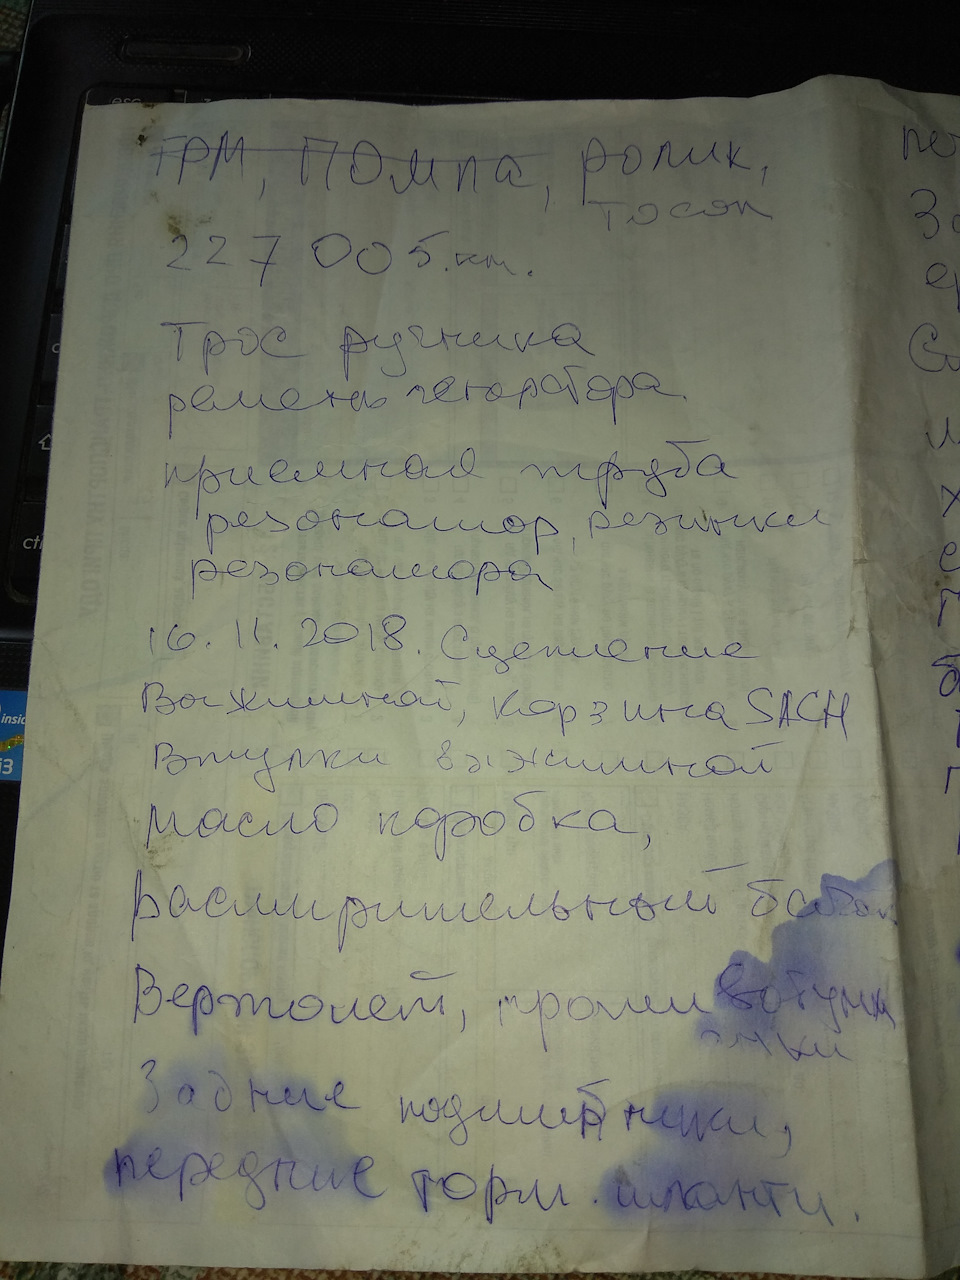 ГРМ, ПОМпа, ролик,
Тосол
227 005 км.
Трос ручника
ремень геноратора.
приемная труба
резонатор, резинки
резонатора
16. 11. 2018. Сцепление
Выжимной, корзина SACH
Втулки выжимной
масло коробка,
Расширительный бачок
Вертолет, против
Задние подшипники,
передние торм. шланги.
esc
insid
i3